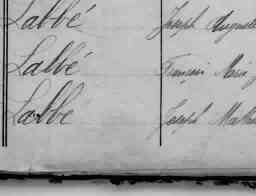 Labbé Joseph Auguste
Labbé François Marie
Labbé Joseph Mathu